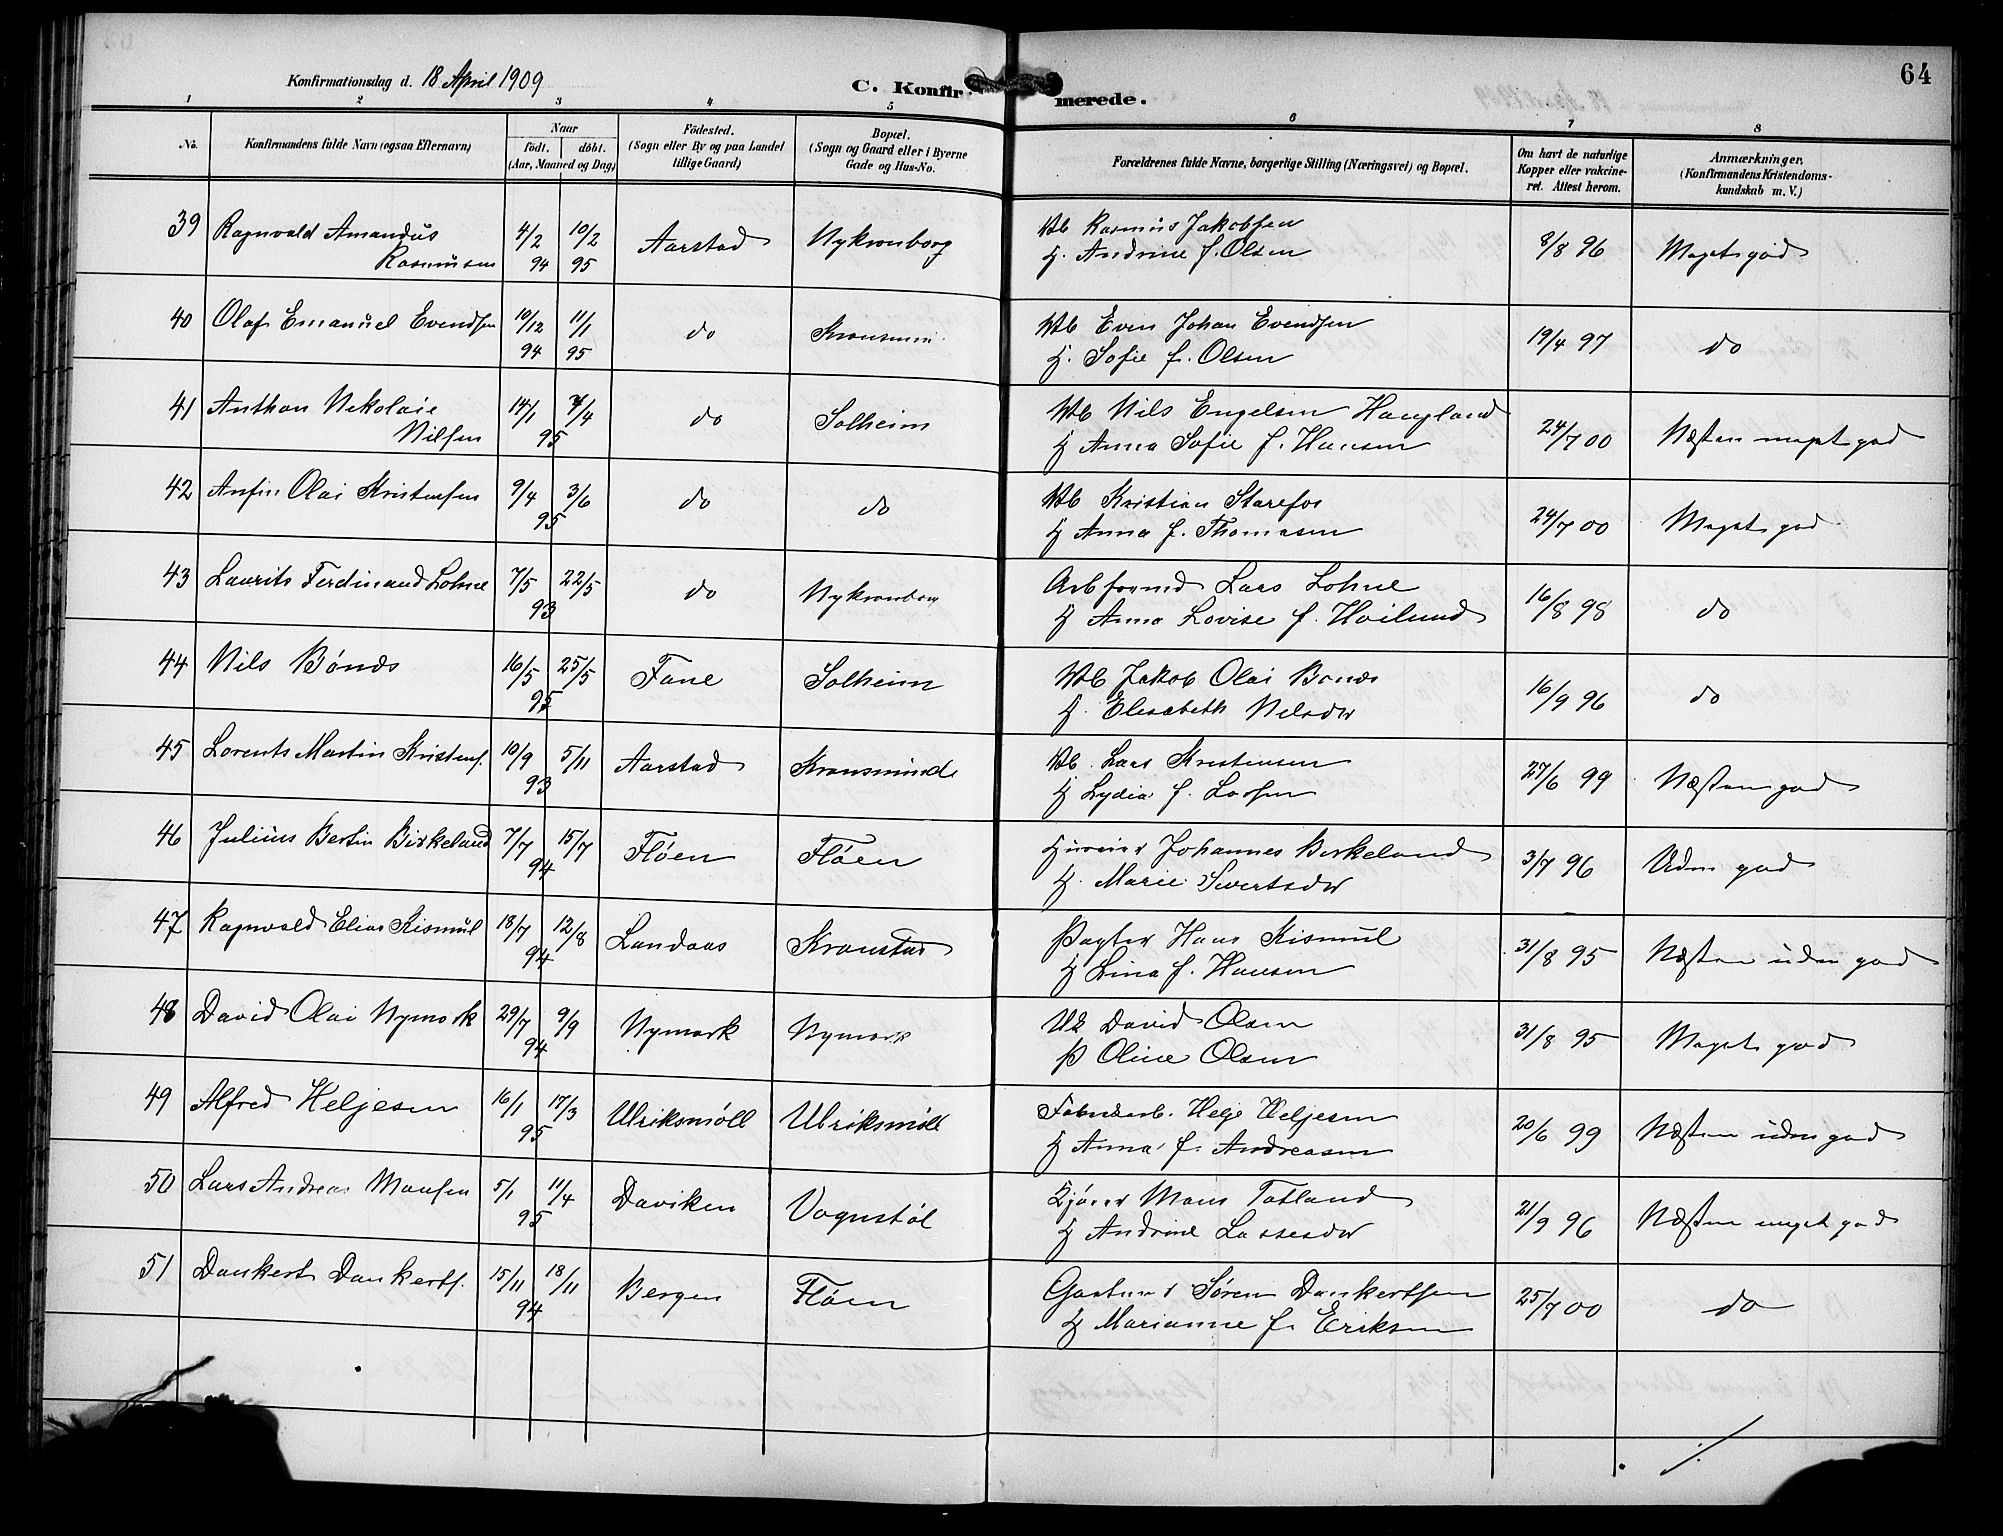 64
Konfirmationsdag d. 18 April 1909
C. Konfirmerede.
1 2 3 4 5 6 7 8
No.
Konfirmandens fulde Navn (ogsaa Efternavn)
Naar
født. døbt.
(Aar, Maaned og Dag)
Fødested.
(Sogn eller By og paa Landet
tillige Gaard)
Bopæl.
(Sogn og Gaard eller i Byerne
Gade og Hus-No.
Forældrenes fulde Navne, borgerlige Stilling (Næringsvei) og Bopæl.
Om havt de naturlige
Kopper eller vakcine-
ret. Attest herom.
Anmærkninger.
(Konfirmandens Kristendoms-
kundskab m. V.)
39 Ragnvald Amandus 4/2 10/2 Aarstad Nykronborg Wb Rasmus Jakobsen 8/8 96 Meget god
Rasmussen 94 95 H. Andrine f. Olsen
40 Olaf Emanuel Evendsen 10/12 11/1 do Wb Even Johan Evendsen 19/4 97 do
94 95 H. Sofie f. Olsen
41 Anthon Nikolaie 14/1 7/4 do Solheim Wb Nils Engelsen Haugland 24/7 00 Næsten meget god
Nilsen 95 H Anna Sofie f. Hansen
42 Anfin Olai Kristensen 9/4 3/6 do do Wb Kristian Starefos 24/7 00 Meget god
95 H Anna f. Thomasen
43 Laurits Ferdinand Lohne 7/5 22/5 do Nykronborg Arbformd Lars Lohne 16/8 98 do
93 H Anna Lovise f. Hoilund
44 Nils Bønæs 16/5 25/5 Fane Solheim Wb Jakob Olai Bonæs 16/9 96 do
95 H. Elisabeth Nilsdtr
45 Lorents Martin Kristens. 10/9 5/11 Aarstad Kronsminde Wb. Lars Kristensen 27/6 99 Næsten god
93 H Lydia f. Larsen
46 Julius Bertin Birkeland 7/7 15/7 Fløen Fløen Johannes Birkeland 3/7 96 Uden god
94 H. Marie Sivertsdtr
47 Ragnvald Elias Kismul 18/7 12/8 Landaas Kronstad Pagter Hans Kismul 31/8 95 Næsten uden god
94 H Lina f. Hansen
48 David Olai Nymark 29/7 9/9 Nymark Nymark Uk David Olsen 31/8 95 Meget god
94 P Oline Olsen
49 Alfred Heljesen 16/1 17/3 Ulriksmøll Ulriksmøll Fabrikarb. Helje Heljesen 20/6 99 Næsten uden god
95 H Anna f. Andreasen
50 Lars Andreas Monsen 5/1 11/4 Daviken Vognstøl Kjører Mons Totland 21/9 96 Næsten meget god
95 H Andrine Lassesdtr
51 Dankert Dankerts. 15/11 18/11 Bergen Fløen Søren Dankertsen 25/7 00 do
94 H Marianne f. Eriksen